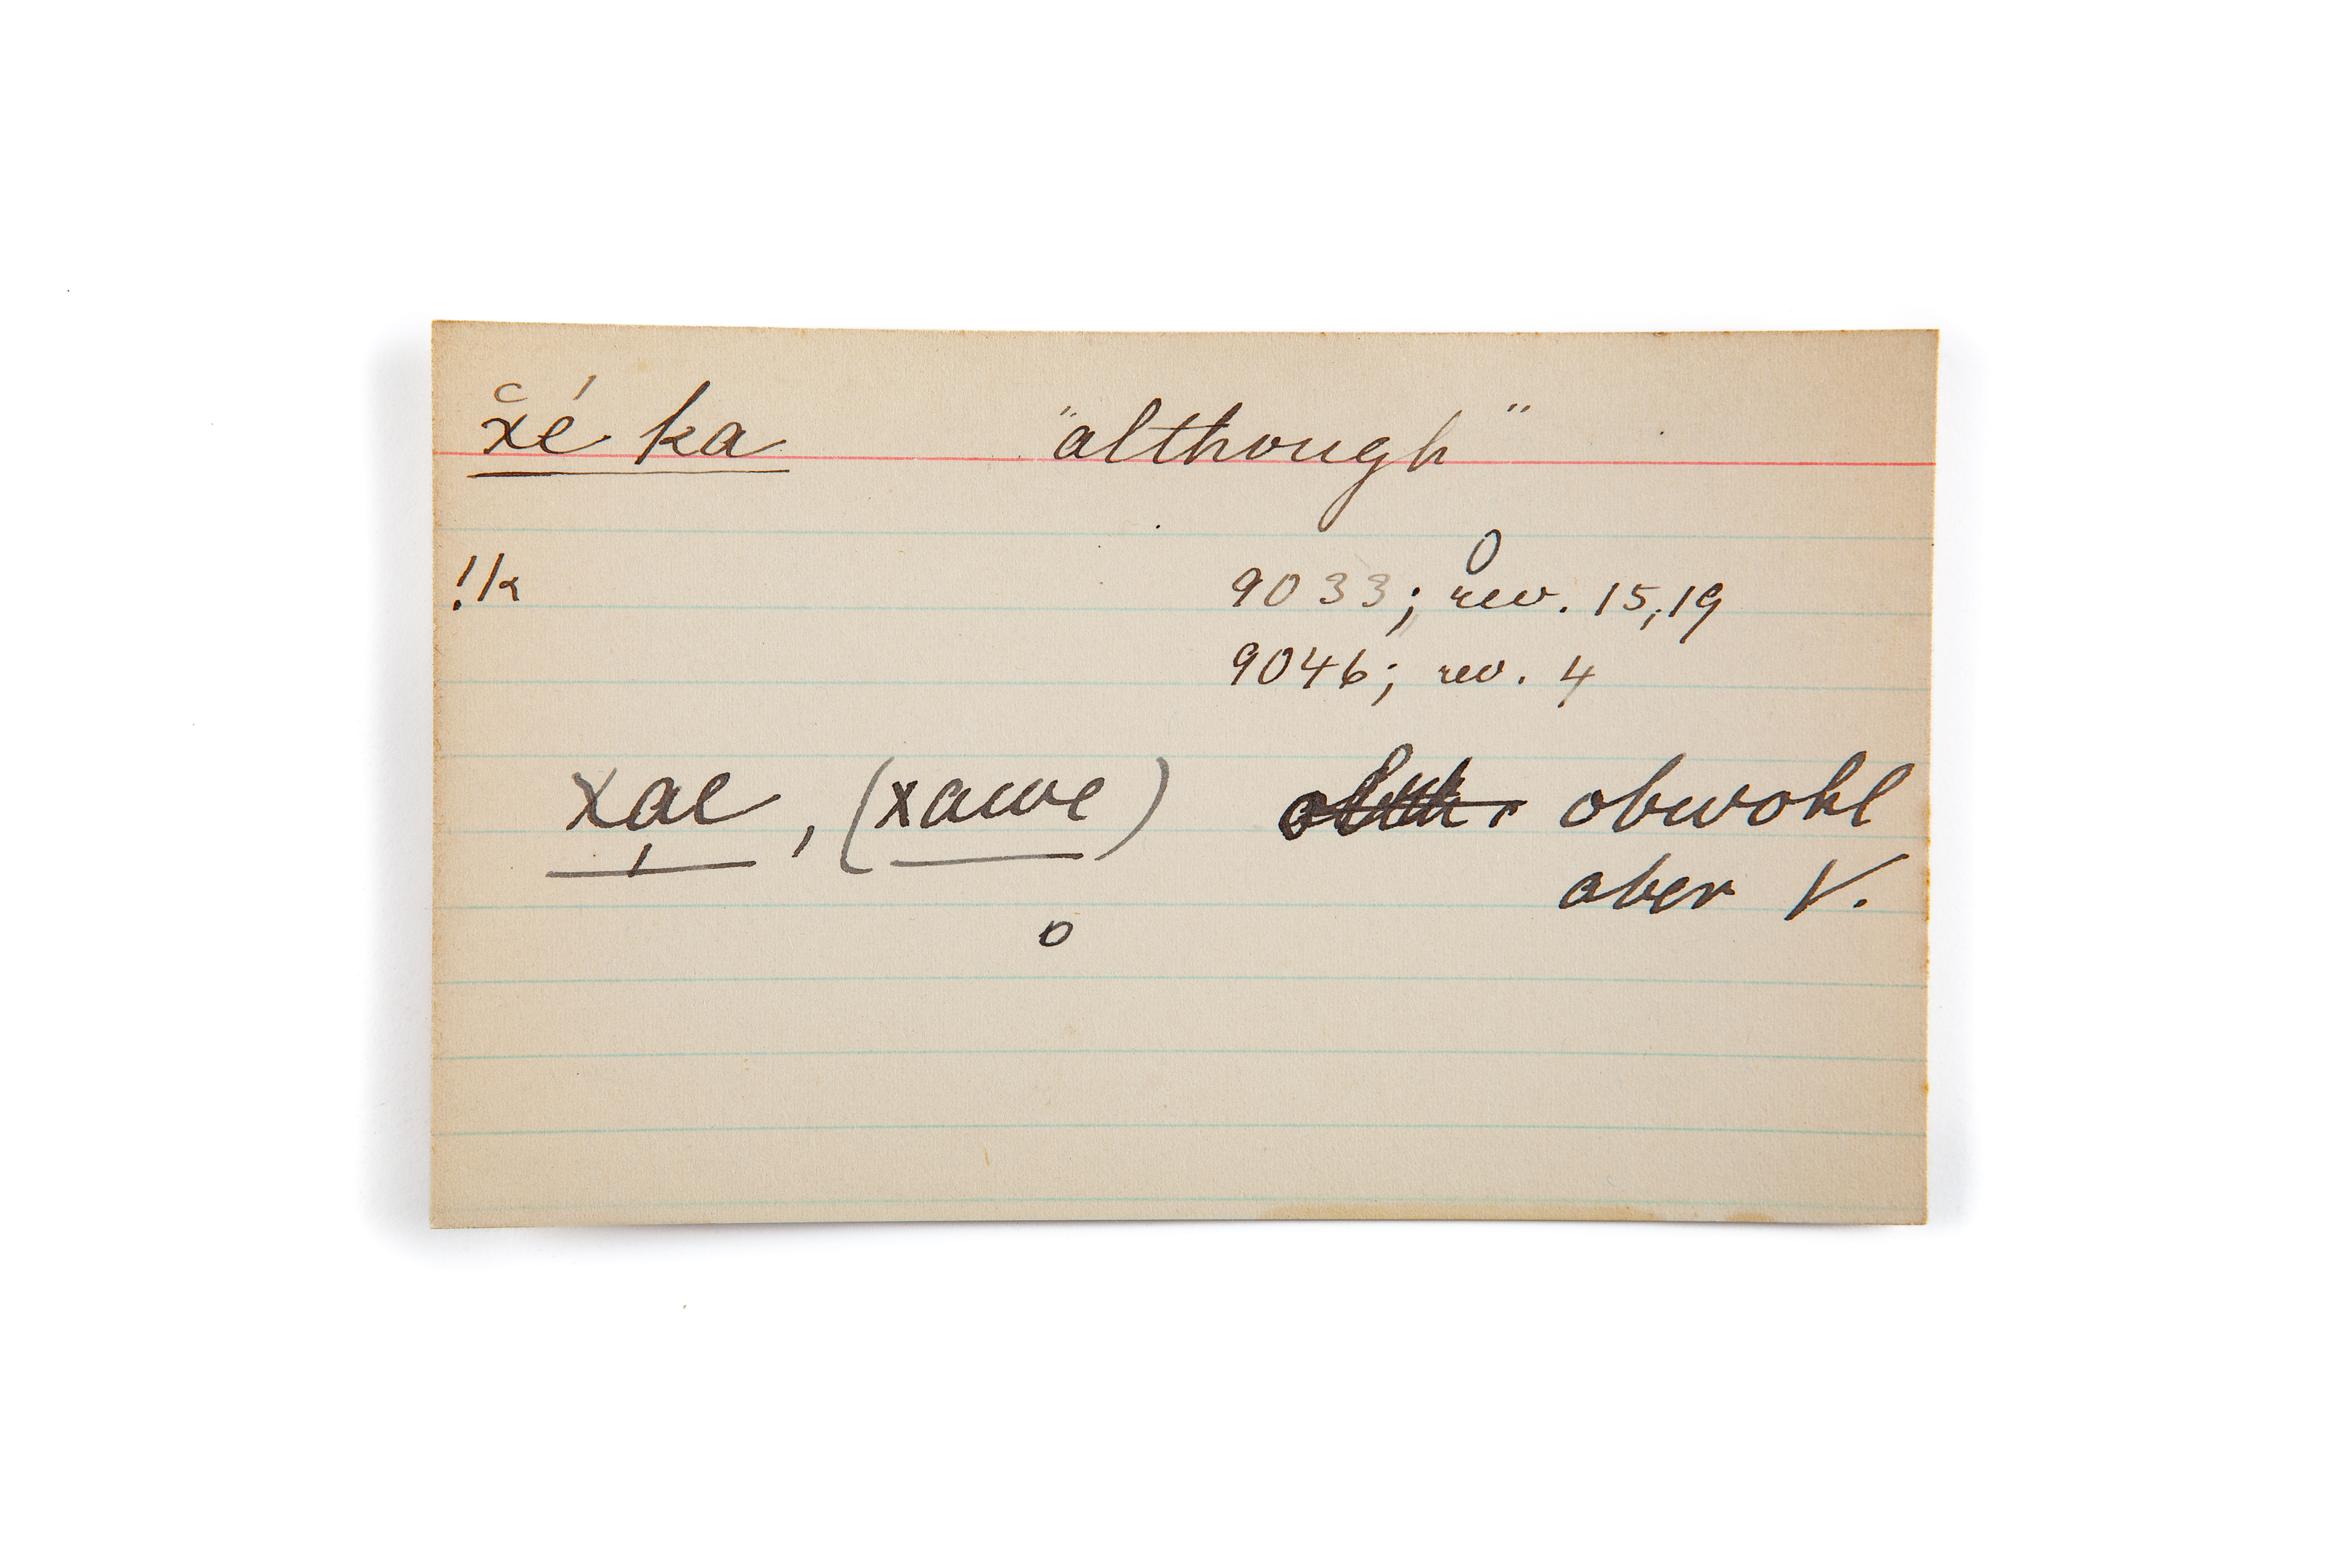 x̆é ka "although"
!k 9033; rev. 15,19
9046; rev. 4
xae, (xawe) obwohl
aber V.